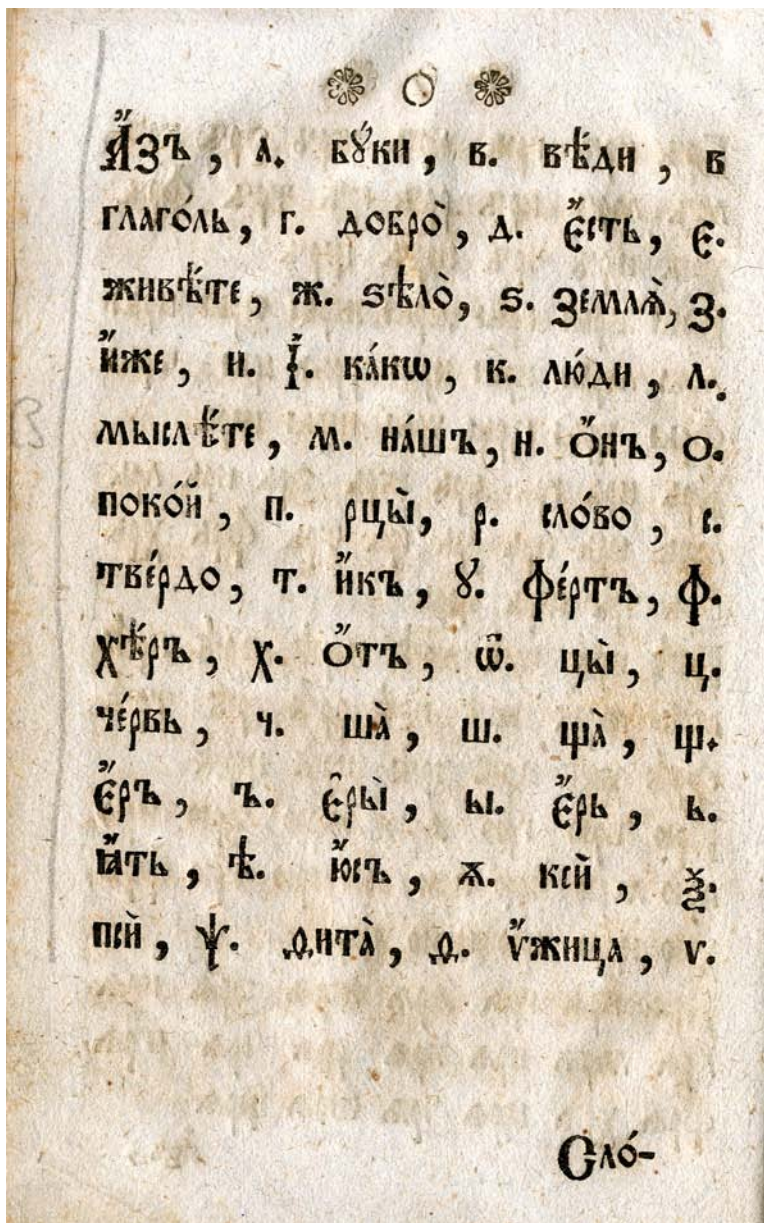 О
А҆́зъ, а. бꙋ́ки, в. вѣ́ди, в
глаго́ль, г. добро̀, д. є҆́сть, є.
живѣ́те, ж. ѕѣло̀, ѕ. землѧ̀, з.
и҆́же, и. і҆. ка́кѡ, к. лю́ди, л.
мыслѣ́те, м. на́шъ, н. о҆́нъ, о.
поко́й, п. рцы̀, р. сло́во, с.
тве́рдо, т. и҆́къ, ꙋ. фе́ртъ, ф.
хѣ́ръ, х. о҆́тъ, ѿ. цы̀, ц.
че́рвь, ч. ша̀, ш. ща̀, щ.
є҆́ръ, ъ. є҆ры̀, ы. є҆́рь, ь.
ꙗ҆́ть, ѣ. ю҆́съ, ѫ. ксѝ, ѯ.
псѝ, ѱ. ѳита̀, ѳ. ѵ҆́жица, ѵ.
Сло́-